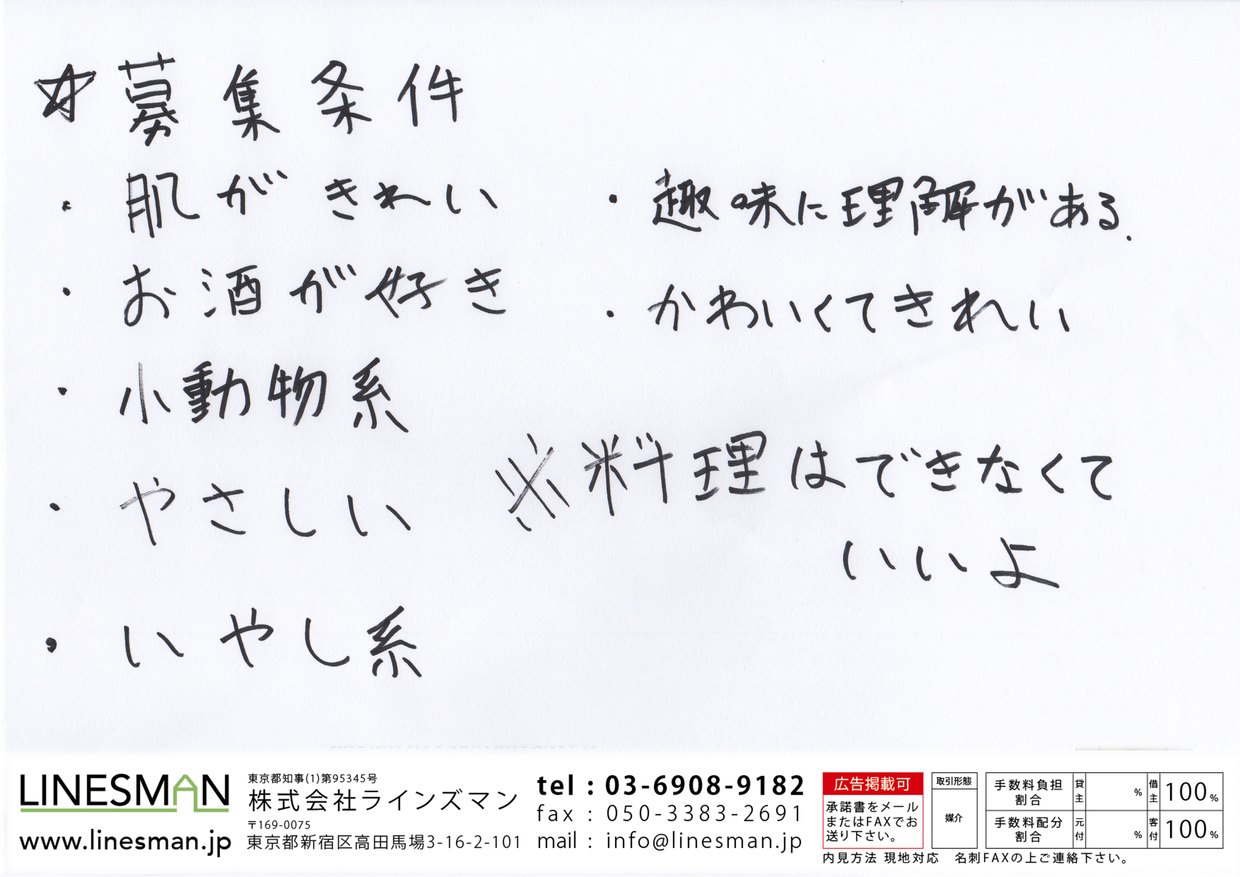 ☆募集条件
・肌がきれい
・お酒が好き
・小動物系
・やさしい
・いやし系
・趣味に理解がある.
・かわいくてきれい
※料理はできなくて
いいよ
LINESMAN
www.linesman.jp
東京都知事(1)第95345号
株式会社ラインズマン
〒169-0075
東京都新宿区高田馬場3-16-2-101
tel : 03-6908-9182
fax : 050-3383-2691
mail : info@linesman.jp
広告掲載可
承諾書をメール
またはFAXでお
送り下さい。
取引形態
媒介
手数料負担割合 貸主 % 借主 100%
手数料配分割合 元付 % 客付 100%
内見方法 現地対応 名刺FAXの上ご連絡下さい。